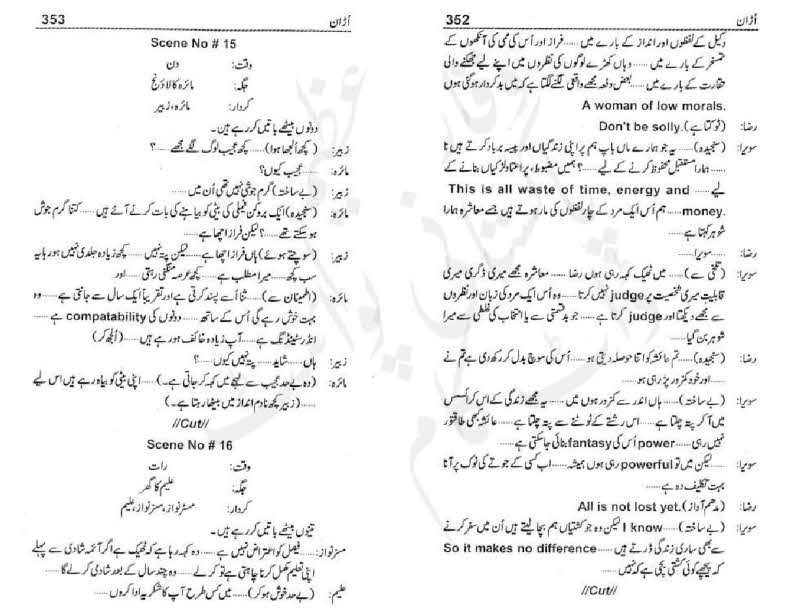 352 اُڑان
وکیل کے لفظوں اور انداز کے بارے میں ...... فراز اور اُس کی ممی کی آنکھوں کے
تمسخر کے بارے میں ...... وہاں کھڑے لوگوں کی نظروں میں اپنے لیے جھلکنے والی
حقارت کے بارے میں ...... بعض دفعہ مجھے واقعی لگنے لگتا ہے کہ میں بدکردار ہو گئی ہوں
A woman of low morals.
رضا: (ٹوکتا ہے) Don't be solly.
سویرا: (سنجیدہ) ...... یہ جو ہمارے ماں باپ ہم پر اپنی زندگیاں اور پیسہ برباد کرتے ہیں نا
...... ہمارا مستقبل محفوظ کرنے کے لیے ......؟ ہمیں مضبوط، پراعتماد لڑکیاں بنانے کے
لیے ...... This is all waste of time, energy and
money. ...... ہم اُس ایک مرد کے چار لفظوں کی مار ہوتے ہیں جسے معاشرہ ہمارا
شوہر کہتا ہے ......
رضا: ...... سویرا ......
سویرا: (تلخی سے) ...... میں ٹھیک کہہ رہی ہوں رضا ...... معاشرہ مجھے میری ڈگری میری
قابلیت میری شخصیت پر judge نہیں کرتا ...... وہ اُس ایک مرد کی زبان اور نظروں
سے مجھے دیکھتا اور judge کرتا ہے ...... جو بدقسمتی سے یا انتخاب کی غلطی سے میرا
شوہر بن گیا
رضا: (سنجیدہ) ...... تم عائشہ کو اتنا حوصلہ دیتی ہو ...... اُس کی سوچ بدل کر رکھ دی ہے تم نے
...... اور خود کمزور پڑ رہی ہو ......
سویرا: (بے ساختہ) ...... ہاں اندر سے کمزور ہوں میں ...... یہ مجھے زندگی کے اس کرائسس
میں آ کر پتہ چلتا ہے ...... اس رشتے کے ٹوٹنے سے پتہ چلتا ہے ...... عائشہ کبھی طاقتور
نہیں رہی ...... power اُس کی fantasy بنائی جا سکتی ہے ......
سویرا: ...... لیکن میں تو powerful رہی ہوں ہمیشہ ...... اب کسی کے جوتے کی نوک پر آنا
بہت تکلیف دہ ہے ......
رضا: (مدھم آواز) All is not lost yet.
سویرا: (بے ساختہ) ...... I know لیکن وہ جو کشتیاں ہم بچا لیتے ہیں اُن میں سفر کرنے
سے بھی ساری زندگی ڈرتے ہیں ...... So it makes no difference
کہ پیچھے کوئی کشتی بچی ہے کہ نہیں ......
//Cut//
353 اُڑان
Scene No # 15
وقت: دن
جگہ: مائرہ کا لاؤنج
کردار: مائرہ، زبیر
دونوں بیٹھے باتیں کر رہے ہیں۔
زبیر: (کچھ اُلجھا ہوا) ...... کچھ عجیب لوگ لگے مجھے ......؟
مائرہ: ...... عجیب کیوں؟
زبیر: (بے ساختہ) گرم جوشی نہیں تھی اُن میں ......
مائرہ: (سنجیدہ) ایک بروکن فیملی کی بیٹی کو بیاہنے کی بات کرنے آئے ہیں ...... کتنا گرم جوش
ہو سکتے تھے ......؟ لیکن فراز اچھا ہے ......
زبیر: (سوچتے ہوئے) ہاں فراز اچھا ہے ...... لیکن پتہ نہیں ...... کچھ زیادہ جلدی نہیں ہو رہا یہ
سب کچھ ...... میرا مطلب ہے ...... کچھ عرصہ منگنی رہتی ...... اور
مائرہ: (اطمینان سے) ...... ثنا اُسے پسند کرتی ہے اور تقریباً ایک سال سے جانتی ہے ...... وہ
بہت خوش رہے گی اُس کے ساتھ ...... دونوں کی compatability ہے ......
انڈرسٹینڈنگ ہے ...... آپ زیادہ خائف ہو رہے ہیں ...... (اُلجھ کر)
زبیر: ہاں ...... شاید ...... پتہ نہیں کیوں ......؟
مائرہ: (وہ بے حد عجیب سے لہجے میں کہہ کر جاتی ہے۔) ...... اپنی بیٹی کو بیاہ رہے ہیں اس لیے
...... (زبیر کچھ نادم انداز میں بیٹھا رہتا ہے۔)
//Cut//
Scene No # 16
وقت: رات
جگہ: علیم کا گھر
کردار: مسٹر نواز، مسز نواز، علیم
تینوں بیٹھے باتیں کر رہے ہیں۔
مسز نواز: ...... فیصل کو اعتراض نہیں ہے ...... وہ کہہ رہا ہے کہ ٹھیک ہے اگر آئمہ شادی سے پہلے
اپنی تعلیم مکمل کرنا چاہتی ہے تو کر لے ...... وہ چند سال کے بعد شادی کر لے گا ......
علیم: (بے حد خوش ہو کر) ...... میں کس طرح آپ کا شکریہ ادا کروں ......